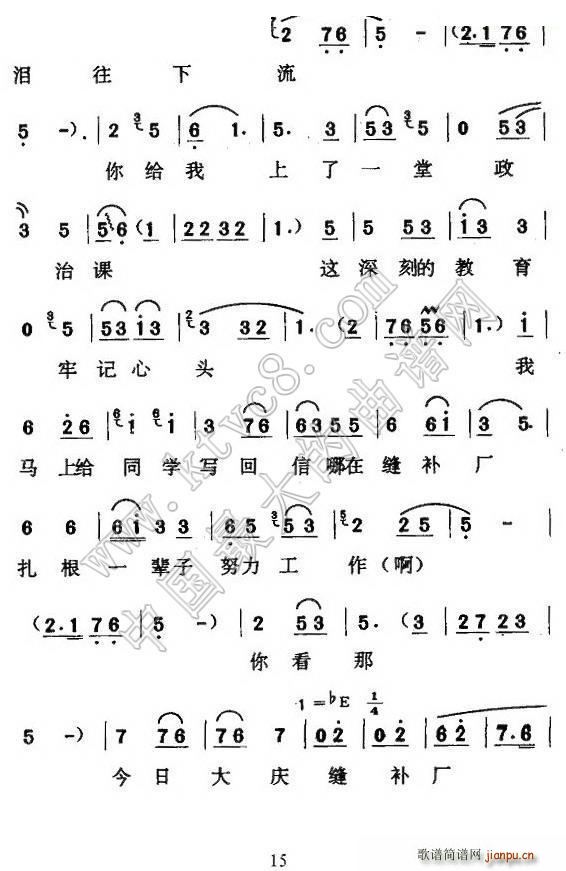 2 76 | 5 - | (2.1 76 |
泪 往 下 流
5 -). | 2 3 5 | 6 1. | 5. 3 | 53 3 5 | 0 53 |
你 给 我 上 了 一 堂 政
3 5 | 56 (1 | 22 32 | 1.) 5 | 5 53 | i3 3 |
治 课 这 深 刻 的 教 育
0 3 5 | 53 i3 | 2 3 32 | 1. (2 | 76 56 | 1.) i |
牢 记 心 头 我
6 26 | 6 i 6 i | 3 76 | 63 55 | 6 6i | 3 5. |
马 上 给 同 学 写 回 信 哪 在 缝 补 厂
6 6 | 6i 33 | 65 53 | 3 2 2 | 25 | 5 - |
扎 根 一 辈 子 努 力 工 作 (啊)
(2.1 76 | 5 -) | 2 53 | 5. (3 | 27 23 |
你 看 那
1=♭E 1/4
5 -) | 7 76 | 76 7 | 02 | 02 | 62 | 7.6 |
今 日 大 庆 缝 补 厂
15
www.ktvc8.com
中国最大的曲谱网
歌谱简谱网
jianpu.cn